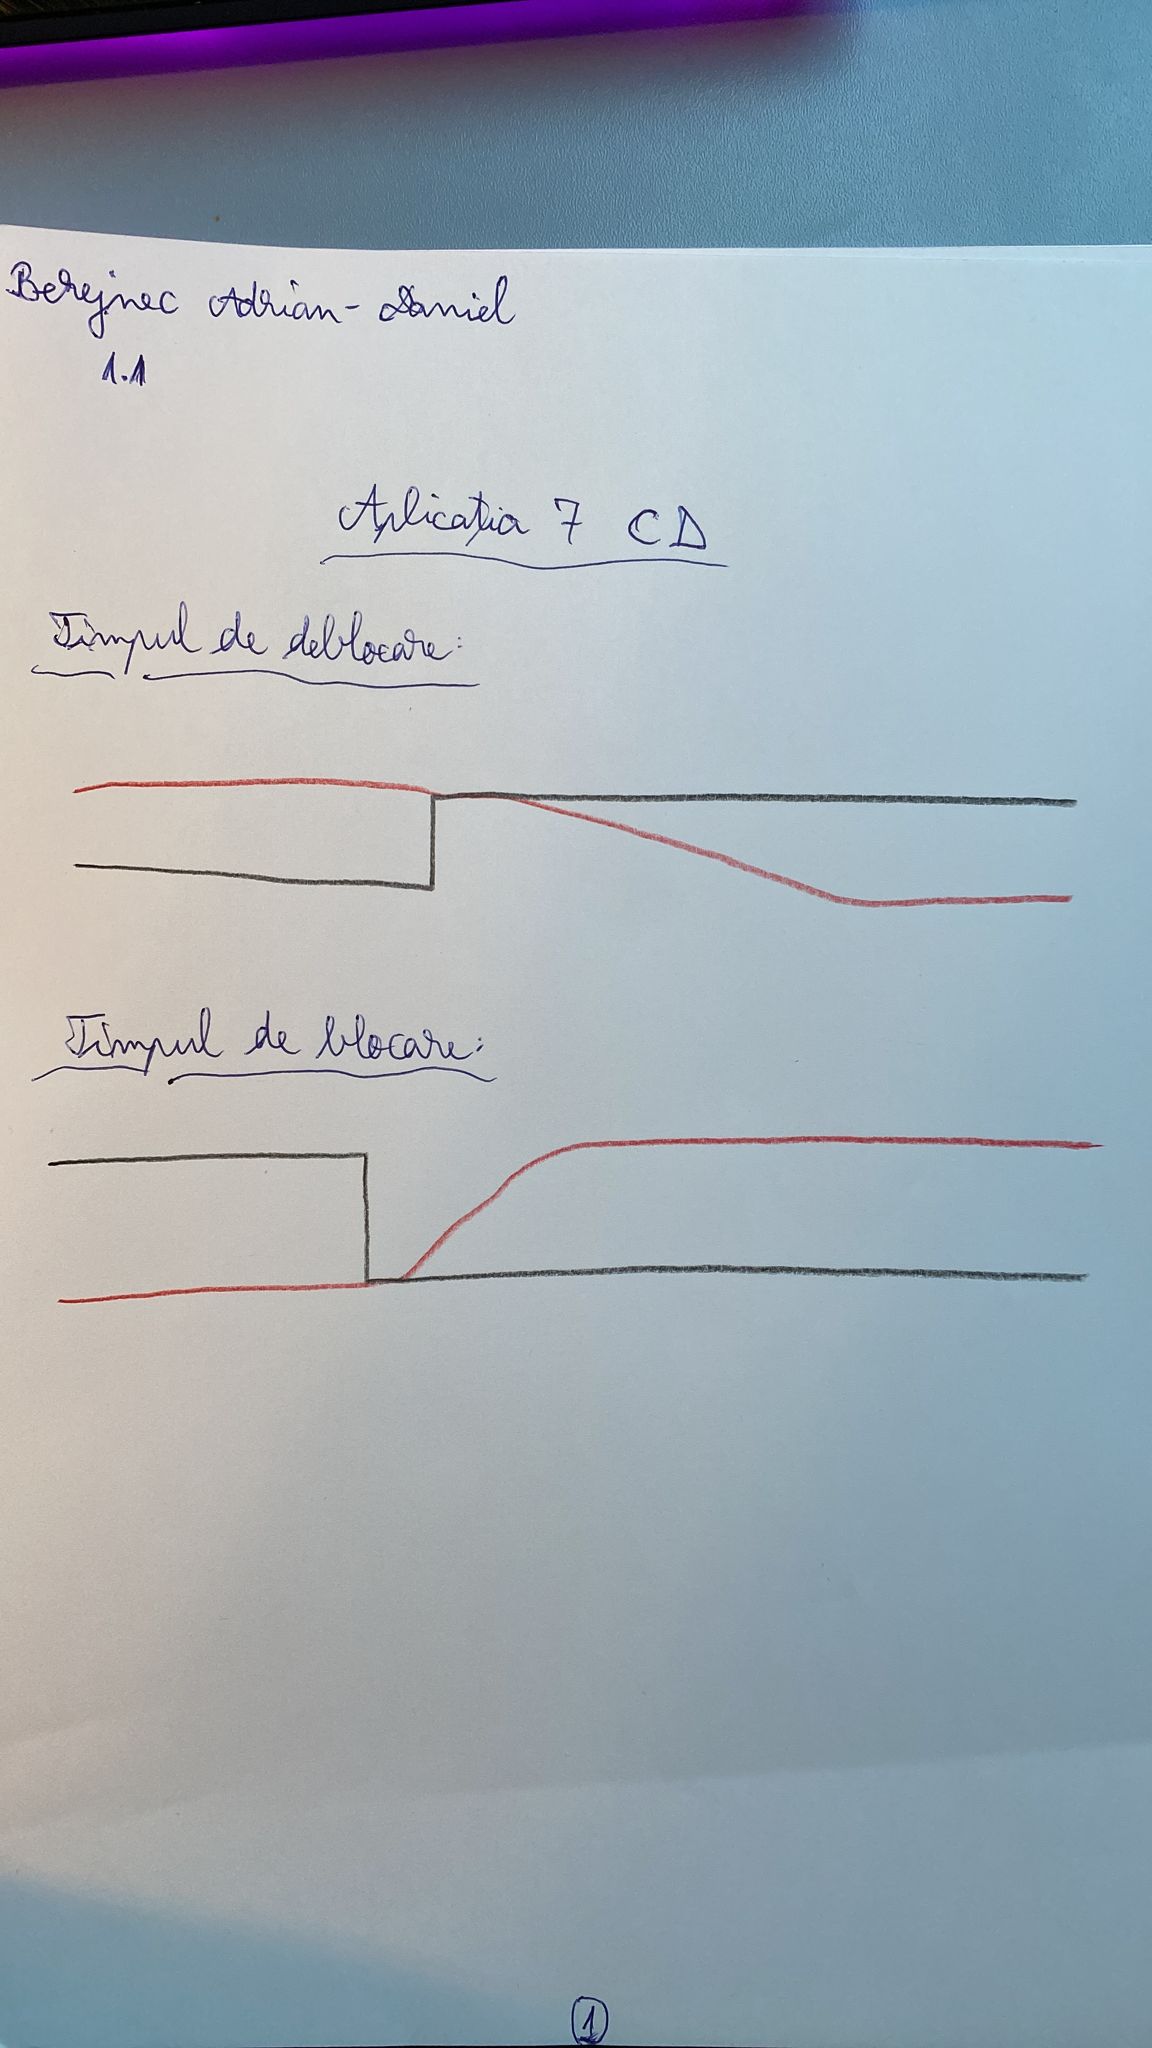 Berejnec Adrian-Daniel
1.1
Aplicația 7 CD
Timpul de deblocare:
Timpul de blocare:
1